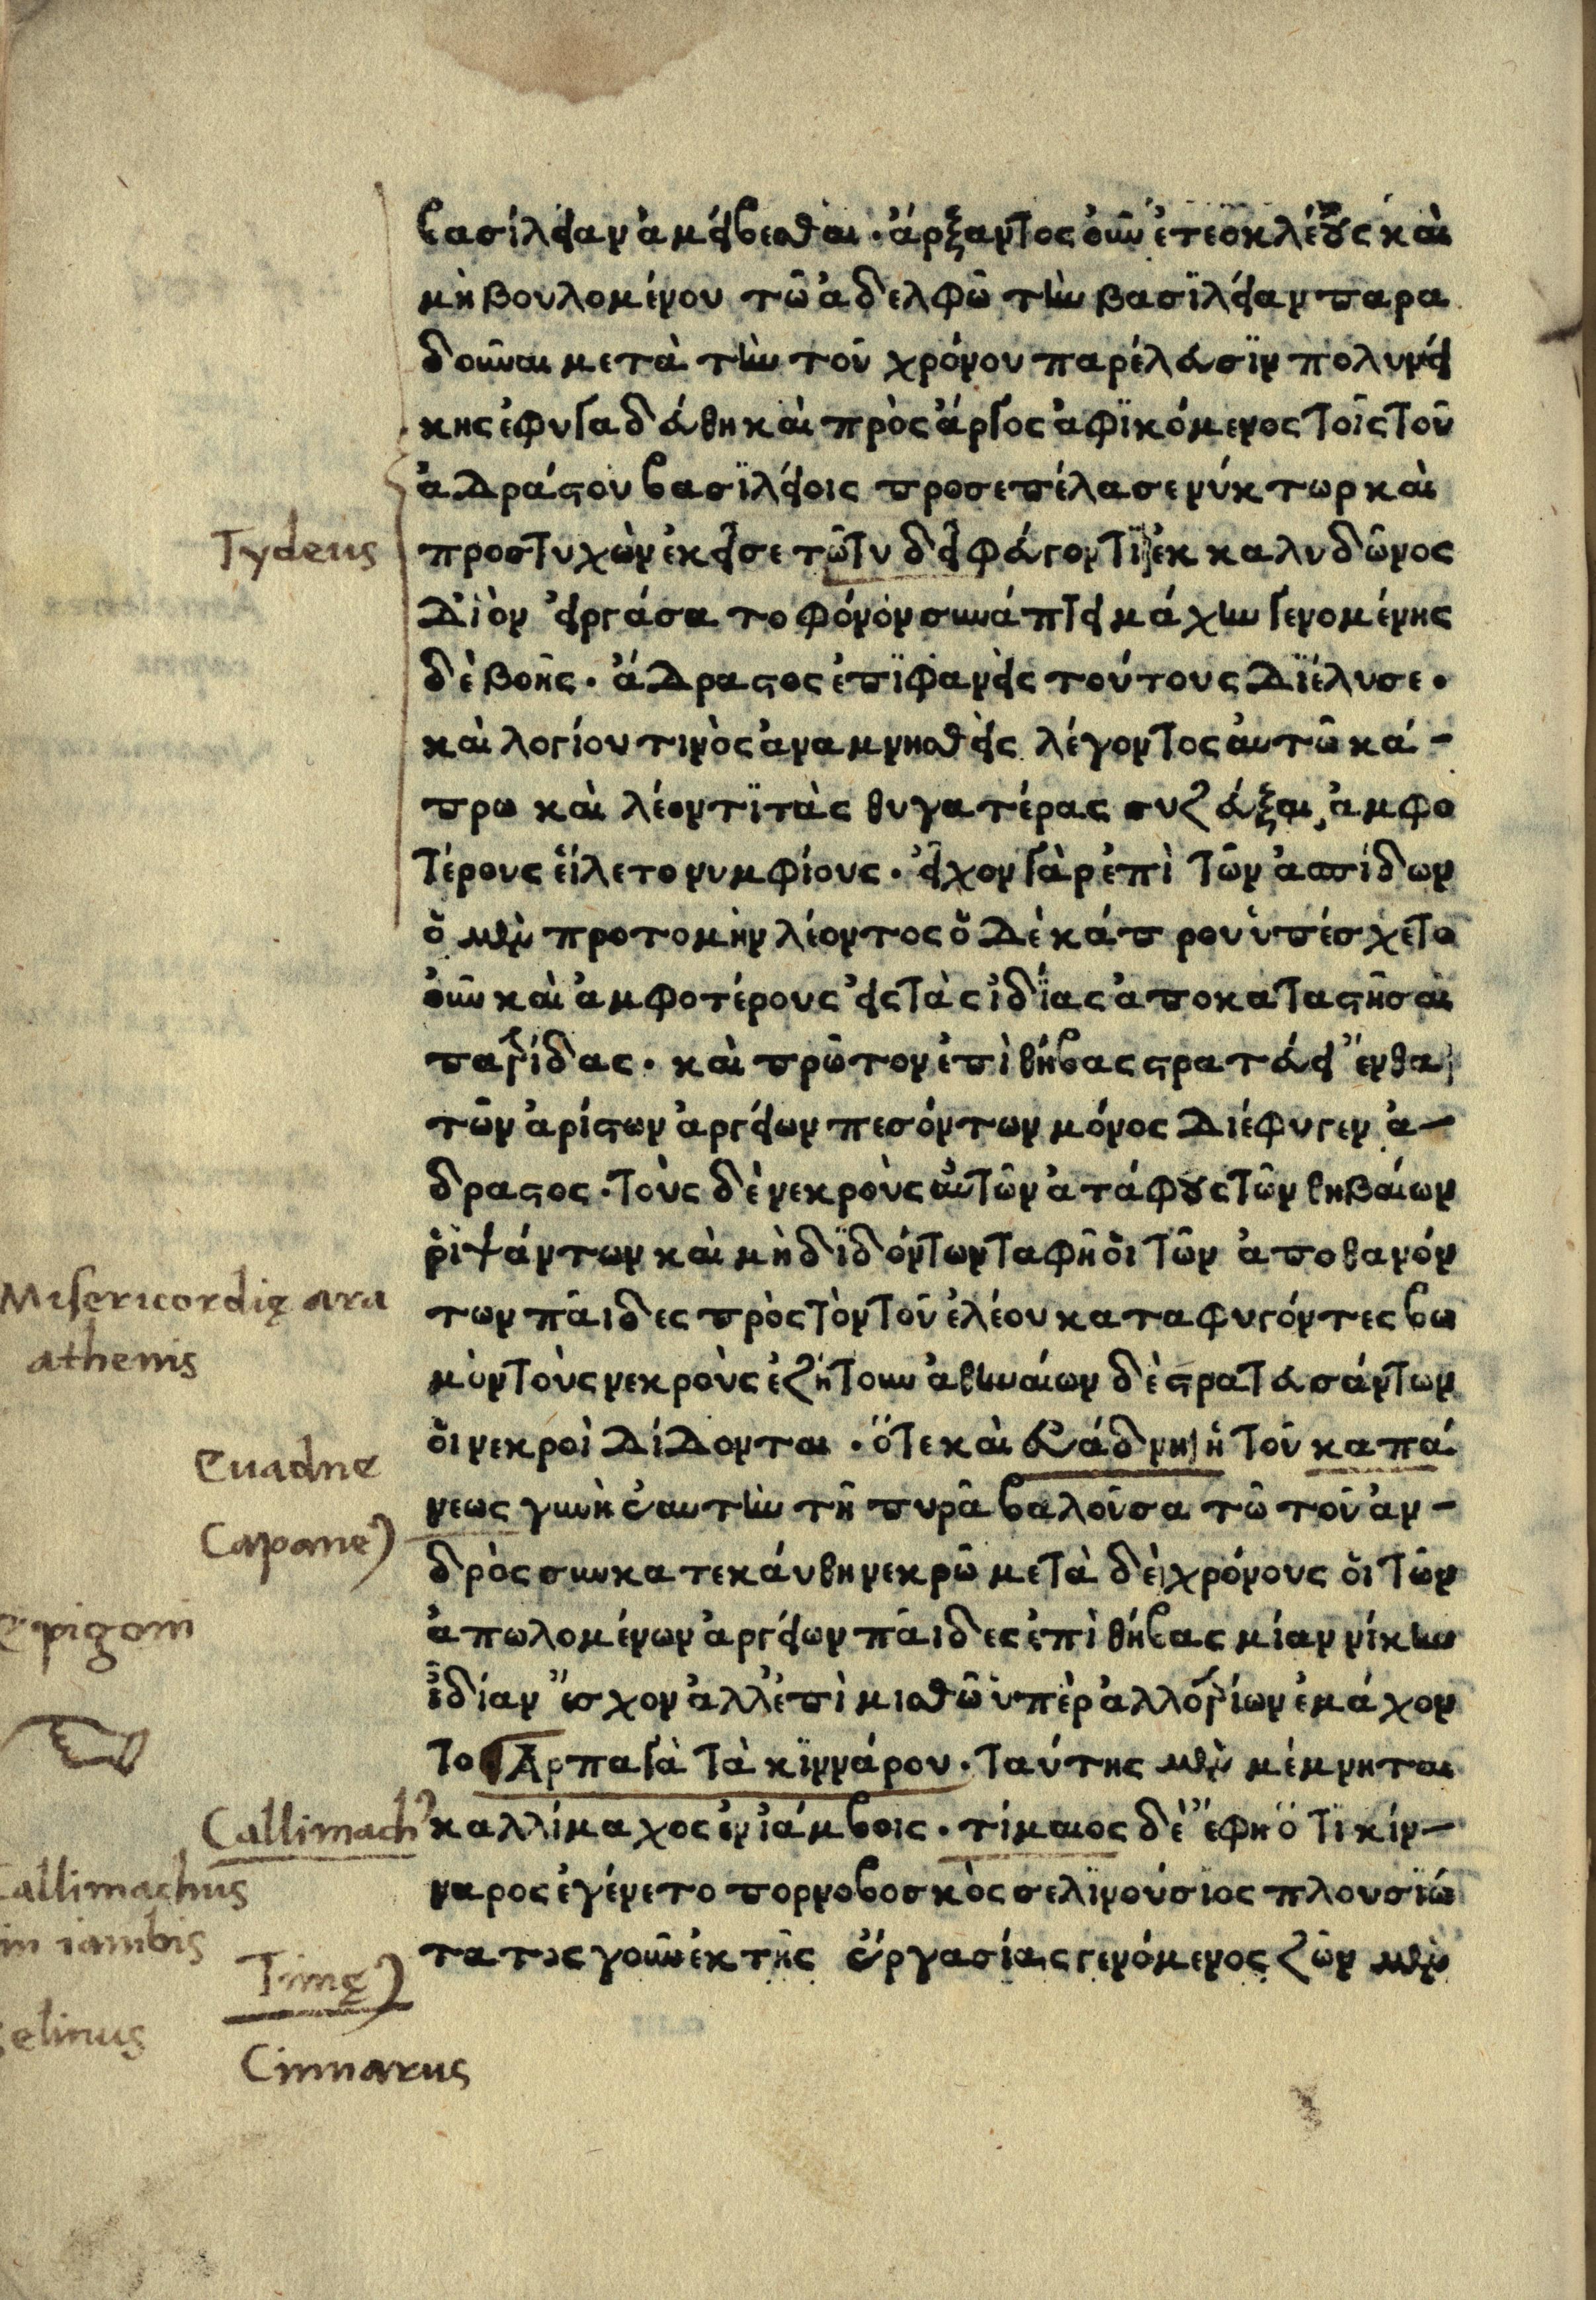 βασίλειαν ἀμείβεσθαι · ἄρξαντος οὖν ἐτεοκλέους καὶ
μὴ βουλομένου τῶ ἀδελφῶ τὴν βασϊλείαν παρα
δοῦναι μετὰ τὴν τοῦ χρόνου παρέλευσϊν πολυνεί
κης ἐφυγαδεύθη καὶ πρὸς ἄργος ἀφϊκόμενος τοῖς τοῦ
ἀδράστου βασϊλείοις προσεπέλασε νύκτωρ καὶ
Tydeus
προστυχὼν ἐκεῖσε τῶ τυδεῖ φεύγοντι ἐκ καλυδῶνος
διὸν εἰργάσατο φόνον συνάπτει μάχην γενομένης
δὲ βοῆς · ἄδραστος ἐπϊφανεὶς τούτους διέλυσε ·
καὶ λογίου τινὸς ἀναμνησθεὶς λέγοντος αὐτῶ κά-
πρω καὶ λέοντϊ τὰς θυγατέρας συζεύξαι, ἀμφο
τέρους εἵλετο νυμφίους · εἶχον γὰρ ἐπὶ τῶν ἀσπίδων
ὁ μὲν προτομὴν λέοντος ὁ δὲ κάπρου ὑπέσχετο
οὖν καὶ ἀμφοτέρους εἰς τὰς ἰδίας ἀποκαταστῆσαι
πατρίδας · καὶ πρῶτον ἐπὶ θήβας στρατεύει ἔνθα
τῶν ἀρίστων ἀργείων πεσόντων μόνος διέφυγεν ἄ-
δραστος · τοὺς δὲ νεκροὺς αὐτῶν ἀτάφους τῶν θηβαίων
ῥιψάντων καὶ μὴ δϊδόντων ταφῆ οἱ τῶν ἀποθανόν
Misericordię ara
athenis
των παῖδες πρὸς τὸν τοῦ ἐλέου καταφυγόντες βω
μὸν τοὺς νεκροὺς ἐζήτουν ἀθηναίων δὲ στρατευσάντων
οἱ νεκροὶ δίδονται · ὅτε καὶ εὐάδνη ἡ τοῦ καπα
Euadne
νεως γυνὴ ἑαυτὴν τῆ πυρᾶ βαλοῦσα τῶ τοῦ ἀν-
Capane)
δρὸς συνκατεκάυθη νεκρῶ μετὰ δὲ χρόνους οἱ τῶν
Epigoni
ἀπωλομένων ἀργείων πᾶιδες ἐπὶ θήβας μίαν νίκην
ἰδίαν ἔσχον ἀλλ' ἐπὶ μισθῶ ὑπὲρ ἀλλοτρίων ἐμάχον
το Ἁρπαγὰ τὰ κϊννάρου · ταύτης μὲν μέμνηται
Callimach'
καλλίμαχος ἐν ἰάμβοις · τίμαιος δὲ ἔφη ὅτϊ κίν-
Callimachus
in iambis
ναρος ἐγένετο πορνοβοσκὸς σελϊνούσϊος πλουσϊώ
τατος γοῦν ἐκ τῆς ἐργασίας γενόμενος ζῶν μὲν
Timę)
selinus
Cinnarus